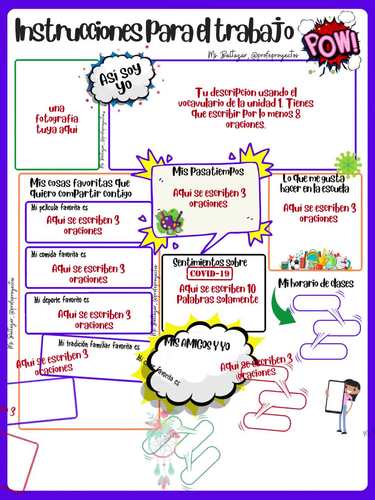 Instrucciones Para el trabajo
Ms. Baltazar, @profeproyectos
POW!
ASi SOY
YO
una
fotografia
tuya aqui
Tu descripcion usando el
vocavulario de la unidad 1. Tienes
que escribir Por lo menos 8
oraciones.
Ms. Baltazar, @profeproyectos
Mis cosas favoritas que
quiero comPartir contigo
Mi pelicula favorita es
Aqui se escriben 3
oraciones
Mi comida favorita es
Aqui se escriben 3
oraciones
Mi deporte favorito es
Aqui se escriben 3
oraciones
Mi tradición familiar favorita es
Aqui se escriben 3
oraciones
Ms. Baltazar, @profeproyectos
Mis PasatiemPos
Aqui se escriben 3
oraciones
Lo que me gusta
hacer en la escuela
Aqui se escriben 3
oraciones
Sentimientos sobre
COVID-19
Aqui se escriben 10
Palabras solamente
Mi horario de clases
MiS AMiGOS Y YO
favorita es
Aqui se escriben 3
oraciones
3
Ms. Baltazar, @profeproyectos